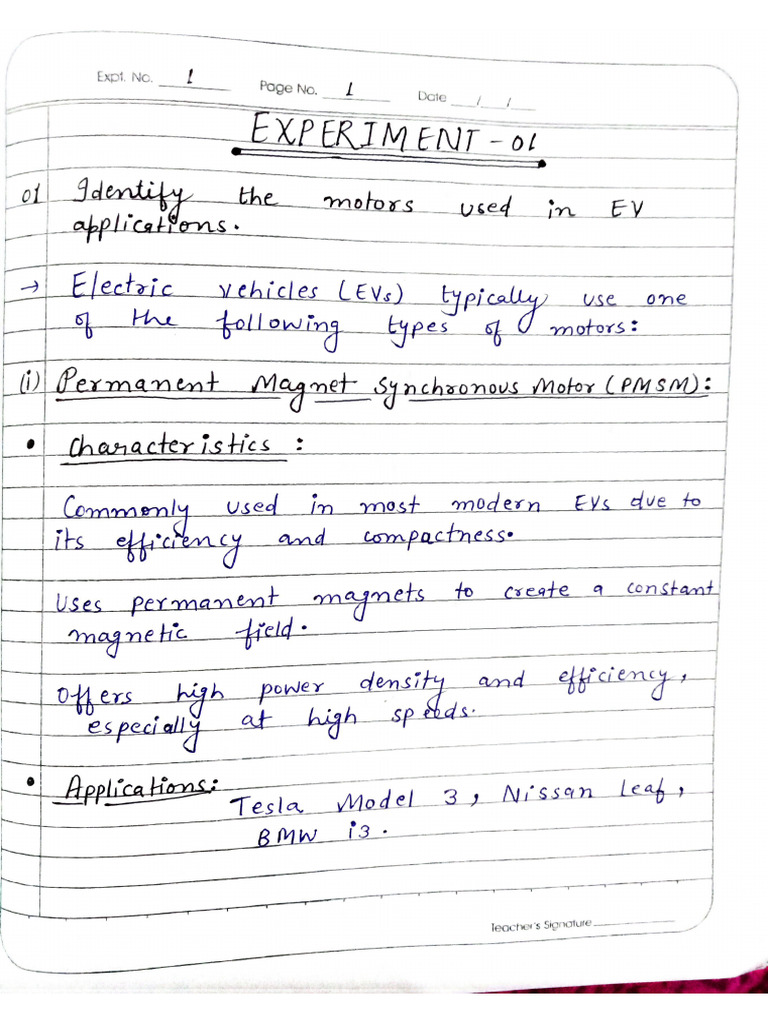 Expt. No. 1 Page No. 1 Date / /
EXPERIMENT - 01
01 Identify the motors used in EV
applications.
→ Electric vehicles (EVs) typically use one
of the following types of motors:
(i) Permanent Magnet Synchronous Motor (PMSM):
• Characteristics :
Commonly used in most modern EVs due to
its efficiency and compactness.
Uses permanent magnets to create a constant
magnetic field.
Offers high power density and efficiency,
especially at high speeds.
• Applications:
Tesla Model 3, Nissan Leaf,
BMW i3.
Teacher's Signature